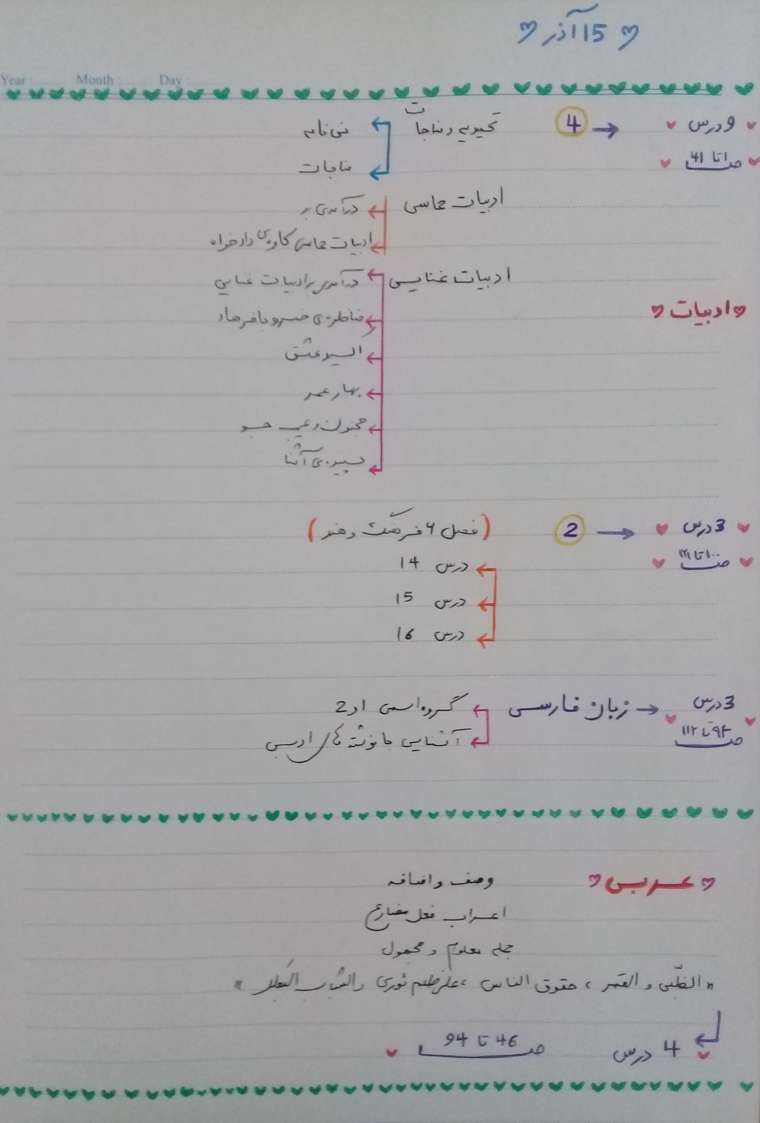 15 آذر
Year: Month: Day:
9 درس → 4 تحمیدیه و مناجات نی نامه
ص 1 تا 41 مناجات
ادبیات حماسی درآمدی بر
ادبیات حماسی کاوه ی دادخواه
ادبیات غنایی درآمدی بر ادبیات غنایی
ادبیات مناظره ی خسرو با فرهاد
اکسیر عشق
بهار عمر
مجنون و عیب جو
سپیده ی آشنا
3 درس → 2 (فصل 6 فرهنگ و هنر)
ص 100 تا درس 14
درس 15
درس 16
3 درس → زبان فارسی گروه اسمی 1 و 2
ص 94 تا 112 آشنایی با نوشته های ادبی
عربی وصف و اضافه
اعراب فعل مضارع
جمله معلوم و مجهول
« الظّبی و القمر ، حقوق الناس ، علی ثوری و الشباب »
4 درس ص 46 تا 94